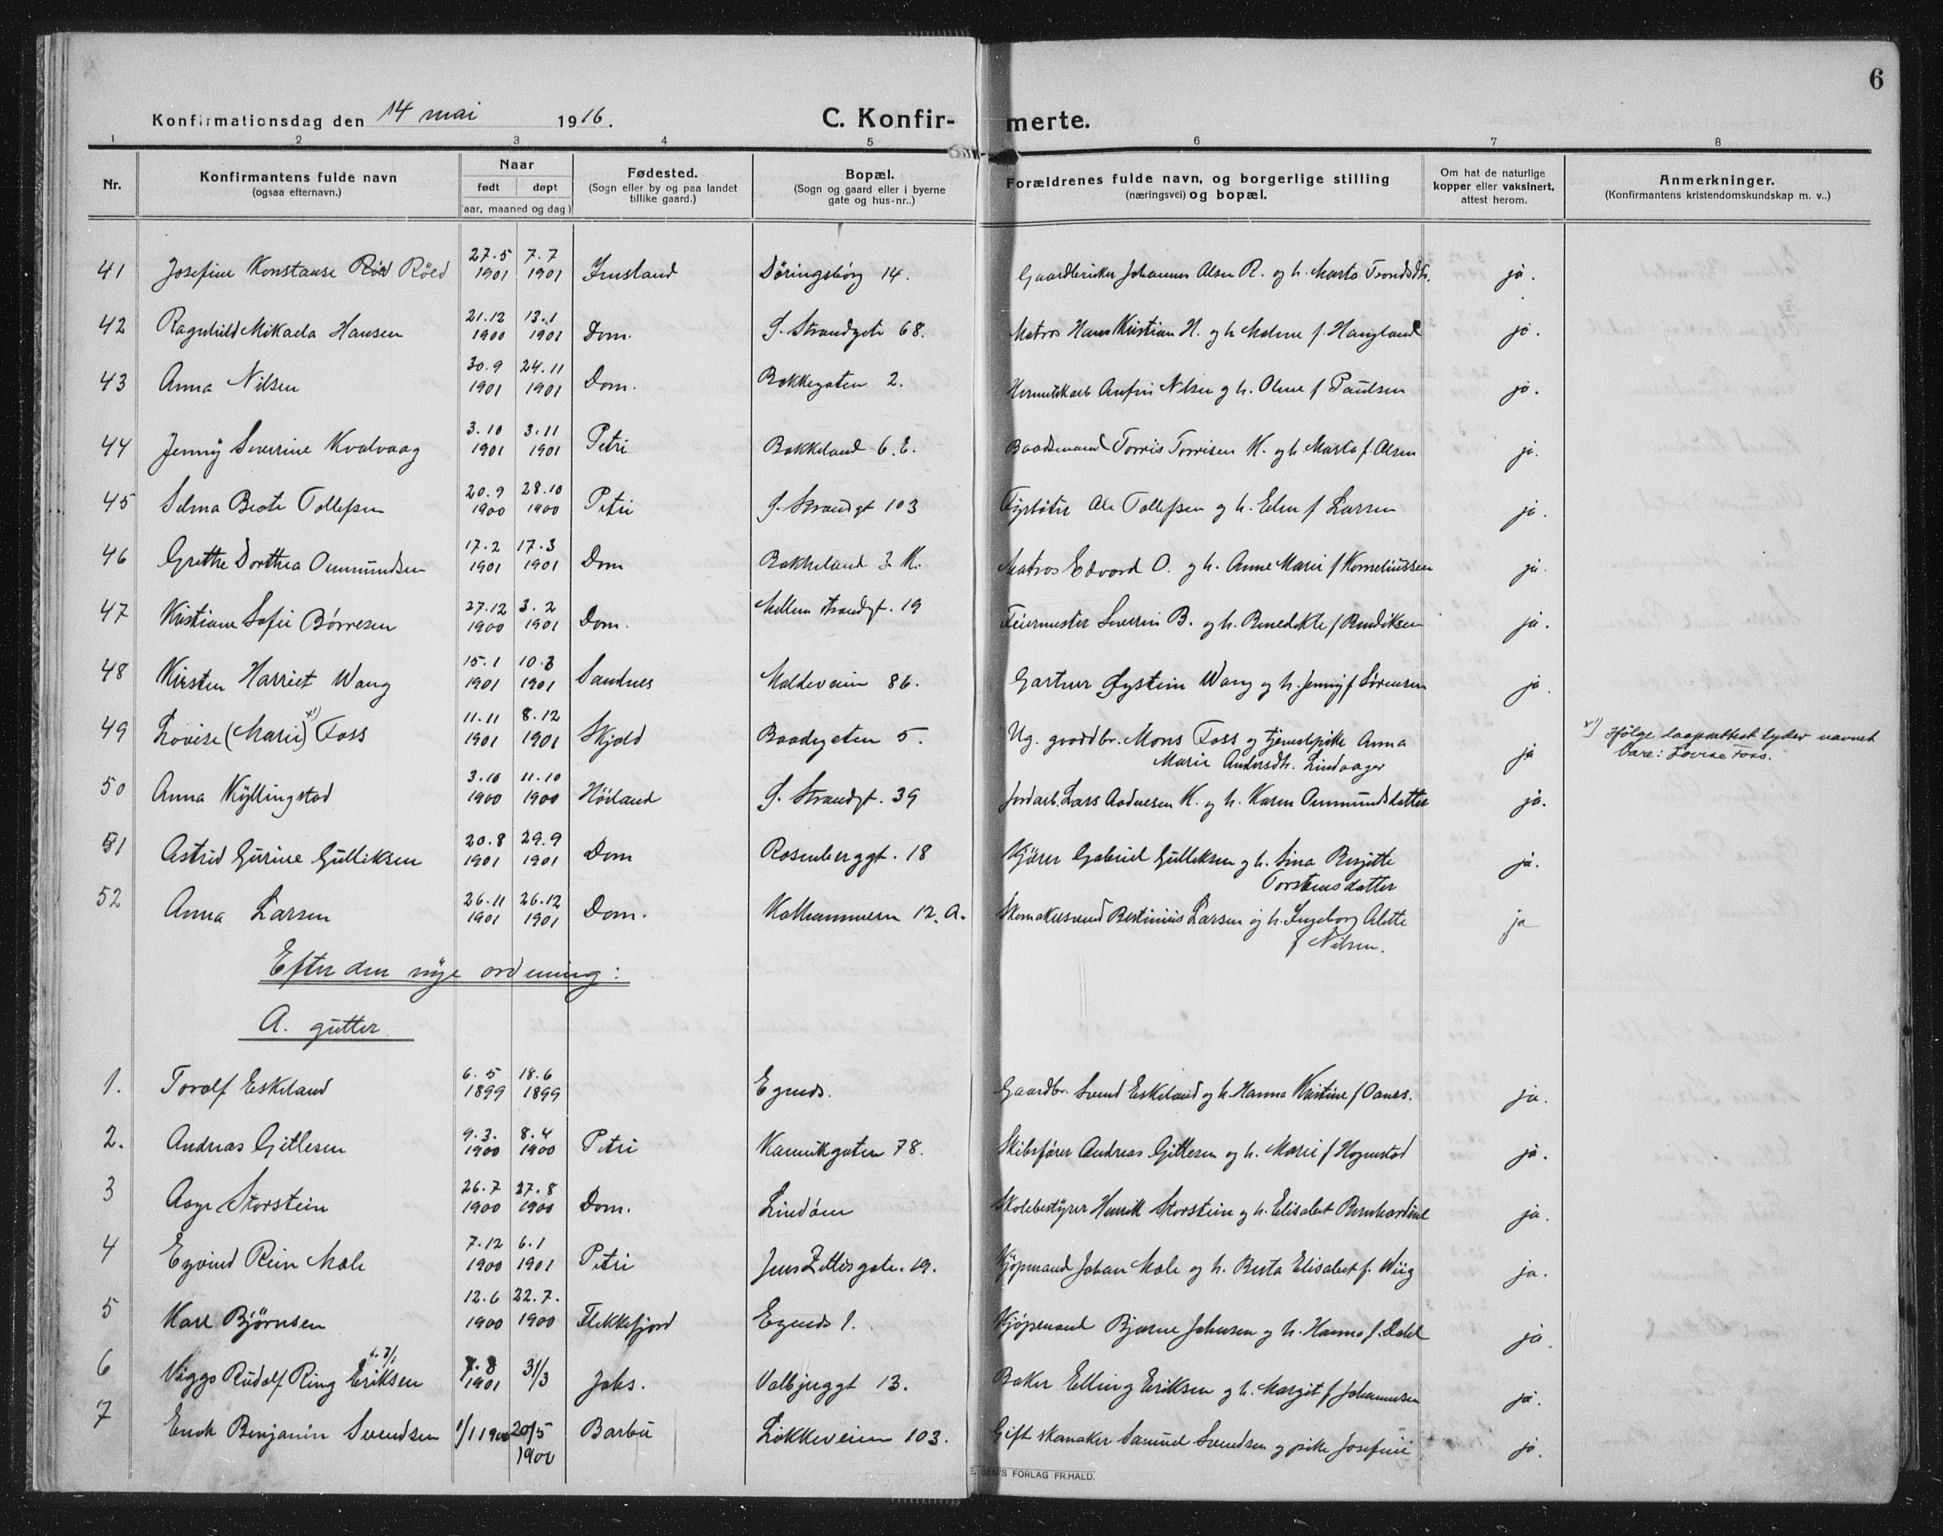 6
Konfirmationsdag den 14 mai 1916.
C. Konfir- merte.
1 2 3 4 5 6 7 8
Nr.
Konfirmantens fulde navn
(ogsaa efternavn.)
Naar
født døpt
(aar, maaned og dag)
Fødested.
(Sogn eller by og paa landet
tillike gaard.)
Bopæl.
(Sogn og gaard eller i byerne
gate og hus-nr..)
Forældrenes fulde navn, og borgerlige stilling
(næringsvei) og bopæl.
Om hat de naturlige
kopper eller vaksinert,
attest herom.
Anmerkninger.
(Konfirmantens kristendomskundskap m. v..)
27.5 7.7
41 Josefine Konstanse Röed 1901 1901 Imsland Döringsborg 14. Gaardbruker Johannes Olsen R. og h. Marta Trondsdtr. ja.
21.12 13.1
42 Ragnhild Mikaela Hansen 1900 1901 Dom. S. Strandgate 68. Matros Hans Kristian H. og h. Malene f. Haugland ja.
30.9 24.11
43 Anna Nilsen 1901 1901 Dom. Bakkegaten 2. Hermetikarb Anfin Nilsen g h. Oline f Paulsen ja.
3.10 3.11
44 Jenny Severine Kvalvaag 1901 1901 Petri Bakkeland 6.E. Baadsmand Torris Torrisen K. og h Marta f. Olsen ja.
20.9 28.10
45 Selma Beate Tollefsen 1900 1900 Petri S. Strandgt 103 Fyrbøter Ole Tollefsen og h. Elen f Larsen ja.
17.2 17.3
46 Grethe Dorthea Ommundsen 1901 1901 Dom Bakkeland 3 K. Matros Edvard O. og h. Anne Marie f Korneliussen ja.
27.12 3.2
47 Kristiane Sofie Børresen 1900 1901 Dom. Mellem strandgt. 19 Feiermester Severin B. og h. Benedikte f Bendiksen ja.
15.1 10.3
48 Kirsten Harriet Wang 1901 1901 Sandnes Maldeveien 86. Gartner Øystein Wang og h. Jenny f Sørensen ja.
11.11 8.12
49 Lovise (Marie) x) Foss 1901 1901 Skjold Baadegaten 5. Ug. gaardbr. Mons Foss og tjenestpike Anna
Marie Andersdtr. Lindaager ja
x) Ifølge daapsattest lyder navnet
bare: Lovise Foss.
3.10 11.10
50 Anna Kyllingstad 1900 1900 Höiland S. Strandgt. 39 Jordarb. Lars Aadnesen K. og h. Karen Ommundsdatter ja.
20.8 29.9
51 Astrid Gurine Gulliksen 1901 1901 Dom Rosenberggt. 18 Kjører Gabriel Gulliksen og h. Sina Birgitte
Torsteinsdatter ja.
26.11 26.12
52 Anna Larsen 1901 1901 Dom. Kalhammeren 12. A. Skomakersvend Bertinius Larsen og h. Ingeborg Alette
f Nilsen. ja
Efter den nye ordning:
A. gutter.
6.5 18.6
1. Toralf Eskeland 1899 1899 Egends. Gaardbr. Svend Eskeland og h. Hanna Kristine f Oanes. ja.
9.3. 8.4
2. Andreas Gitlesen 1900 1900 Petri Kannikgaten 78. Skibsfører Andreas Gitlesen og h. Marie f Hognestad ja.
26.7 27.8
3 Aage Storstein 1900 1900 Dom. Lindöen Skolebestyrer Henrik Storstein og h. Elisabet Bernhardine ja.
7.12 6.1
4 Eyvind Rein Male 1900 1901 Petri Jens Zetlizgate. 19. Kjøpmand Johan Male og h. Berta Elisabet f. Wiig ja.
12.6 22.7.
5 Karl Bjørnsen 1900 1900 Flekkefjord Egends 1. Kjøpmand Bjarne Johnsen og h. Hanna f. Dahl ja.
6 Viggo Rudolf Ring Eriksen 7.8 1901 31/3 Johs. Valbjerggt 13. Baker Elling Eriksen og h. Margit f Johannesen ja.
7 Enok Benjamin Svendsen 1/1 1900 20/5 1900 Barbu Løkkeveien 103. Gift skomaker Samuel Svendsen og pike Josefine ja.
FORLAG FR.HALD.